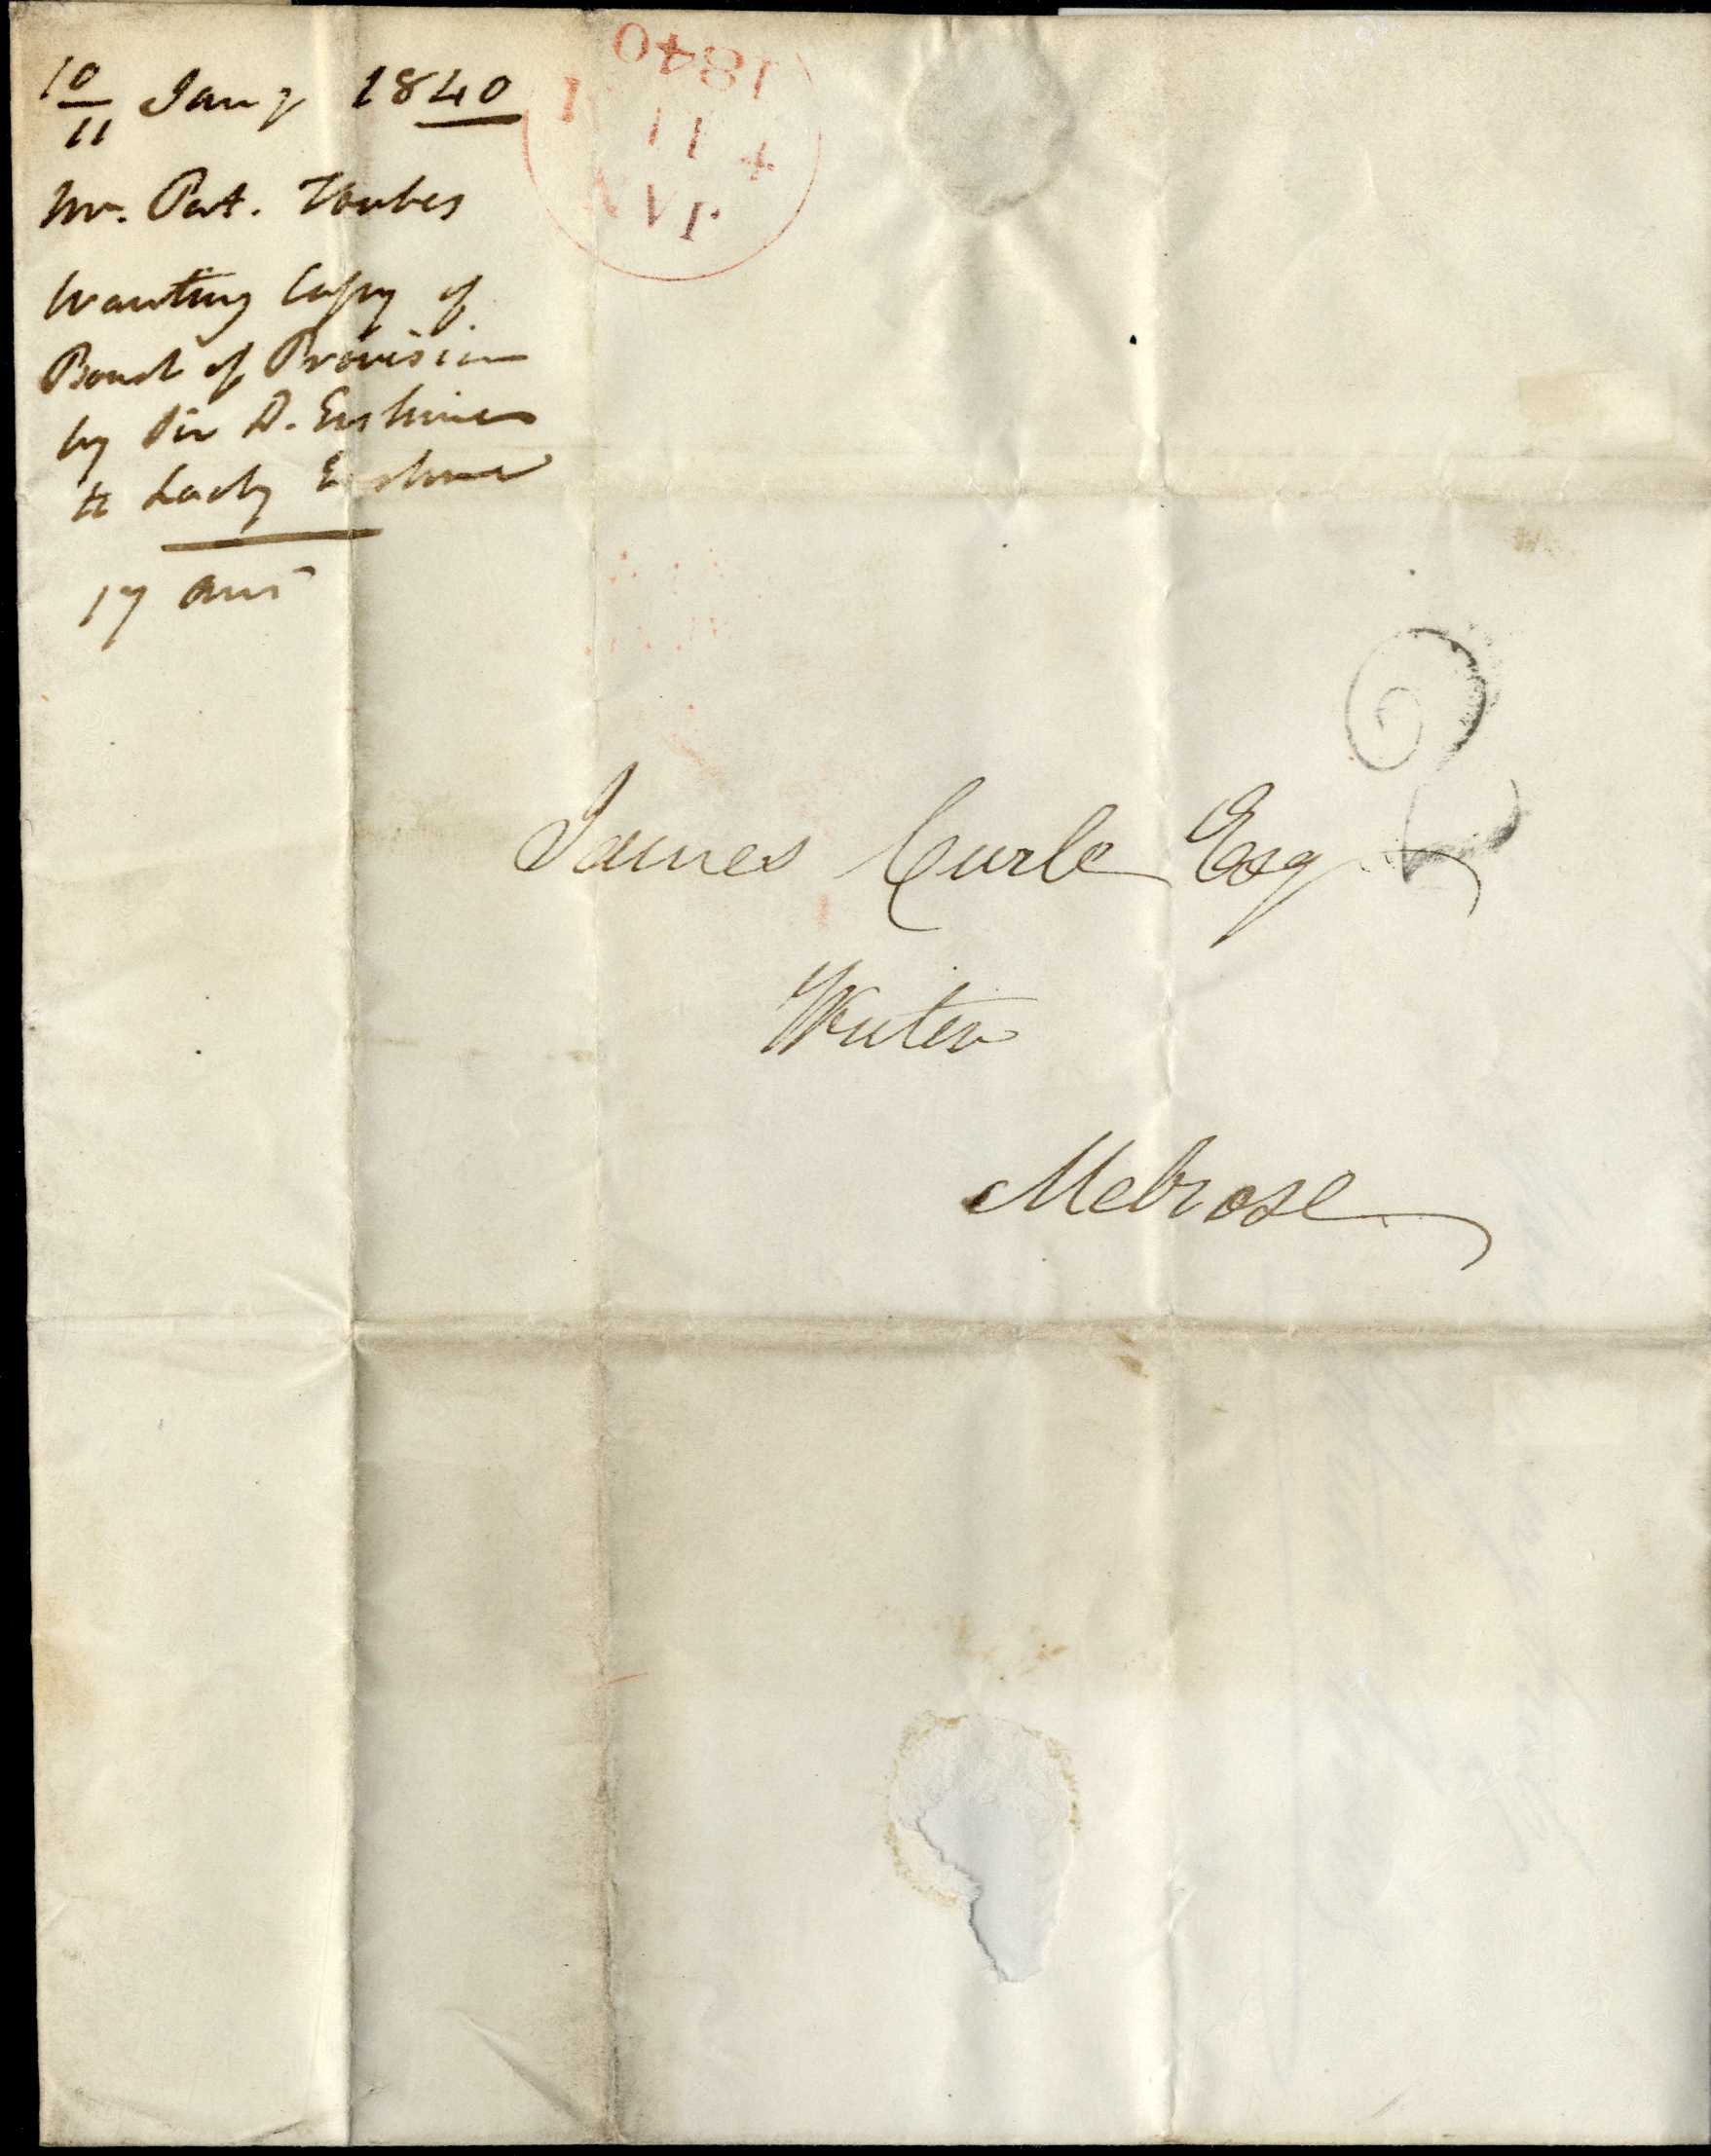 10/11 Jany 1840
Mr. Pat. Forbes
Wanting Copy of
Bond of Provision
by Sir D. Erskine
to Lady Erskine
17 ans
1840
11
JAN
James Curle Esq
Writer
Melrose